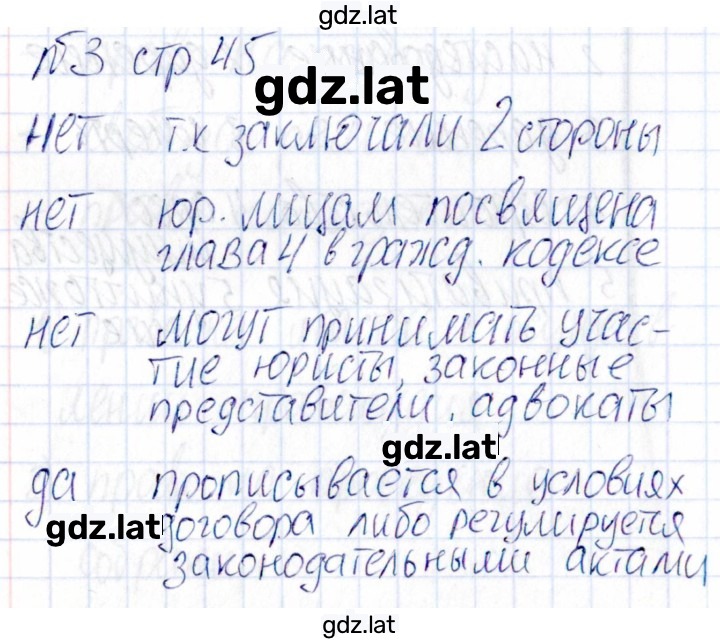 gdz.lat
№3 стр 45
gdz.lat
нет т.к заключали 2 стороны
нет юр. лицам посвящена
глава 4 в гражд. кодексе
нет могут принимать учас-
тие юристы, законные
представители. адвокаты
gdz.lat
да прописывается в условиях
gdz.lat договора либо регулируется
законодательными актами
gdz.lat